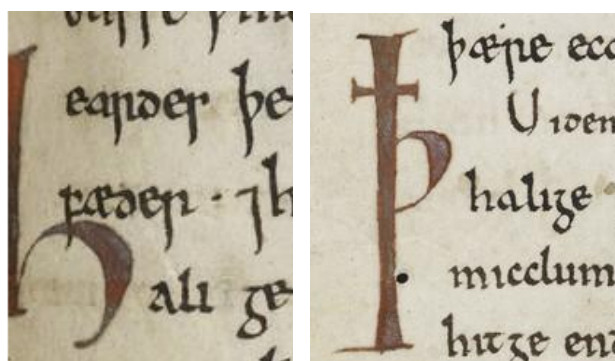 eardes þe
fæder · ⁊ h
Hali ge
þære ecc
Þ
halige
micclum
hit ge